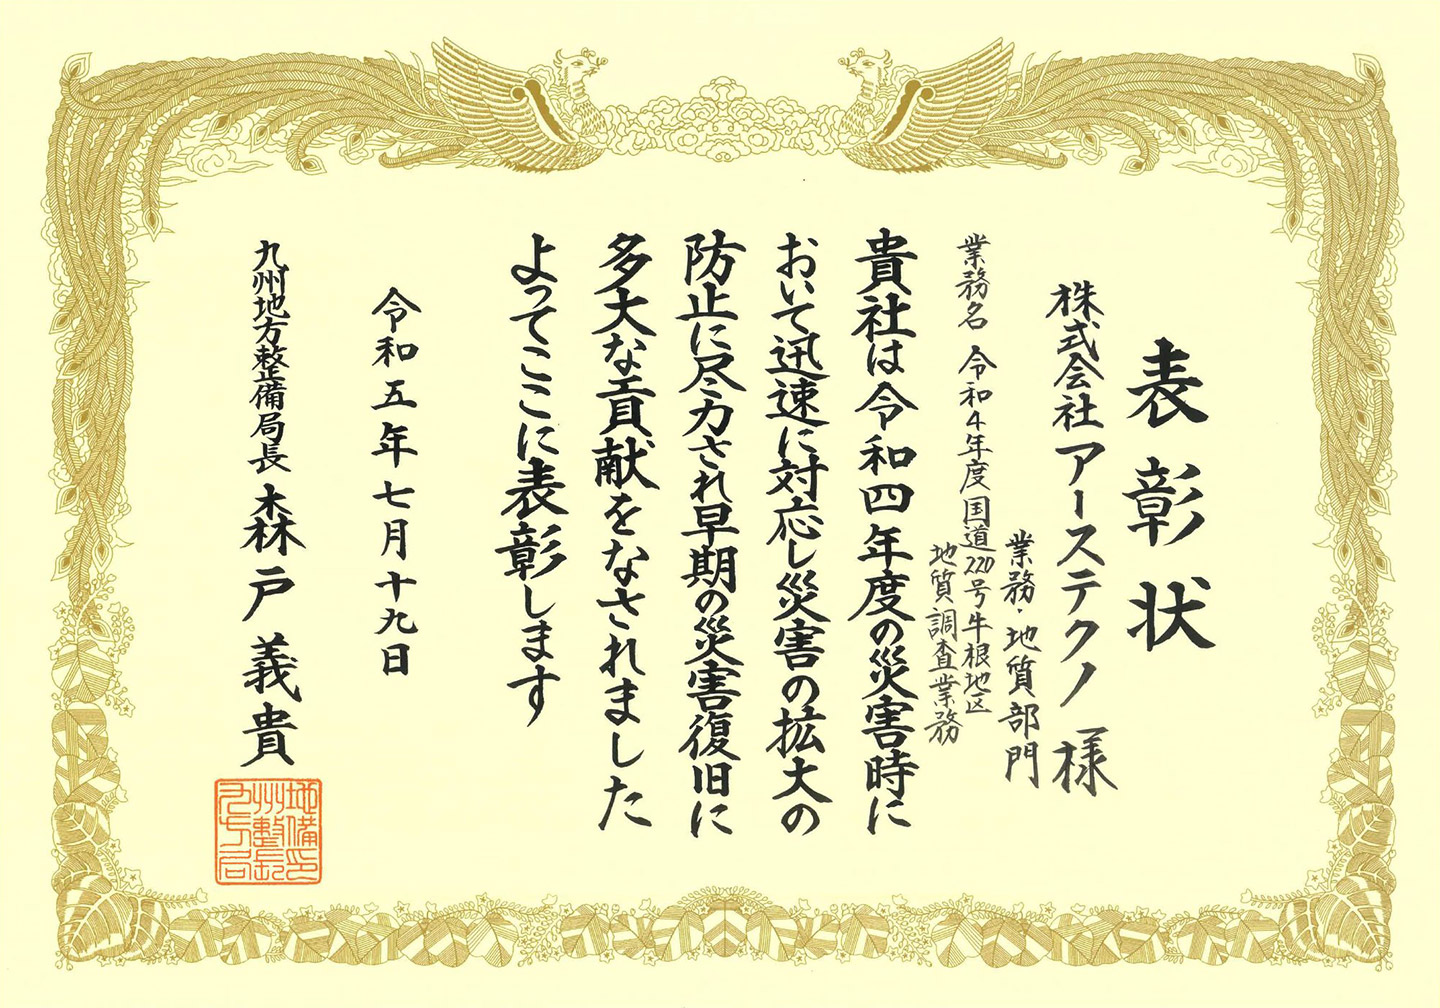 表彰状
株式会社アーステクノ様
業務・地質部門
業務名 令和4年度国道220号牛根地区
地質調査業務
貴社は令和四年度の災害時に
おいて迅速に対応し災害の拡大の
防止に尽力され早期の災害復旧に
多大な貢献をなされました
よってここに表彰します
令和五年七月十九日
九州地方整備局長 森戸義貴